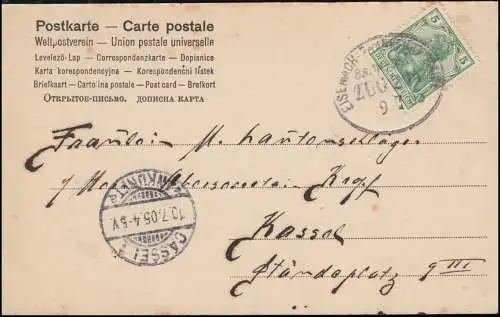 Postkarte — Carte postale
Weltpostverein — Union postale universelle
Levelező-Lap — Correspondenzkarte — Dopisnice
Karta korespondencyjna — Korespondenčni listek
Briefkaart — Cartolina postale — Post card — Brefkort
Открытое письмо. дописна карта
EISENACH
ZUG
9
5
5
Fräulein M. Lautenschläger
Kassel
Ständeplatz 9 III
ANKUNFT
10.7.05.4-5V
CASSEL 1